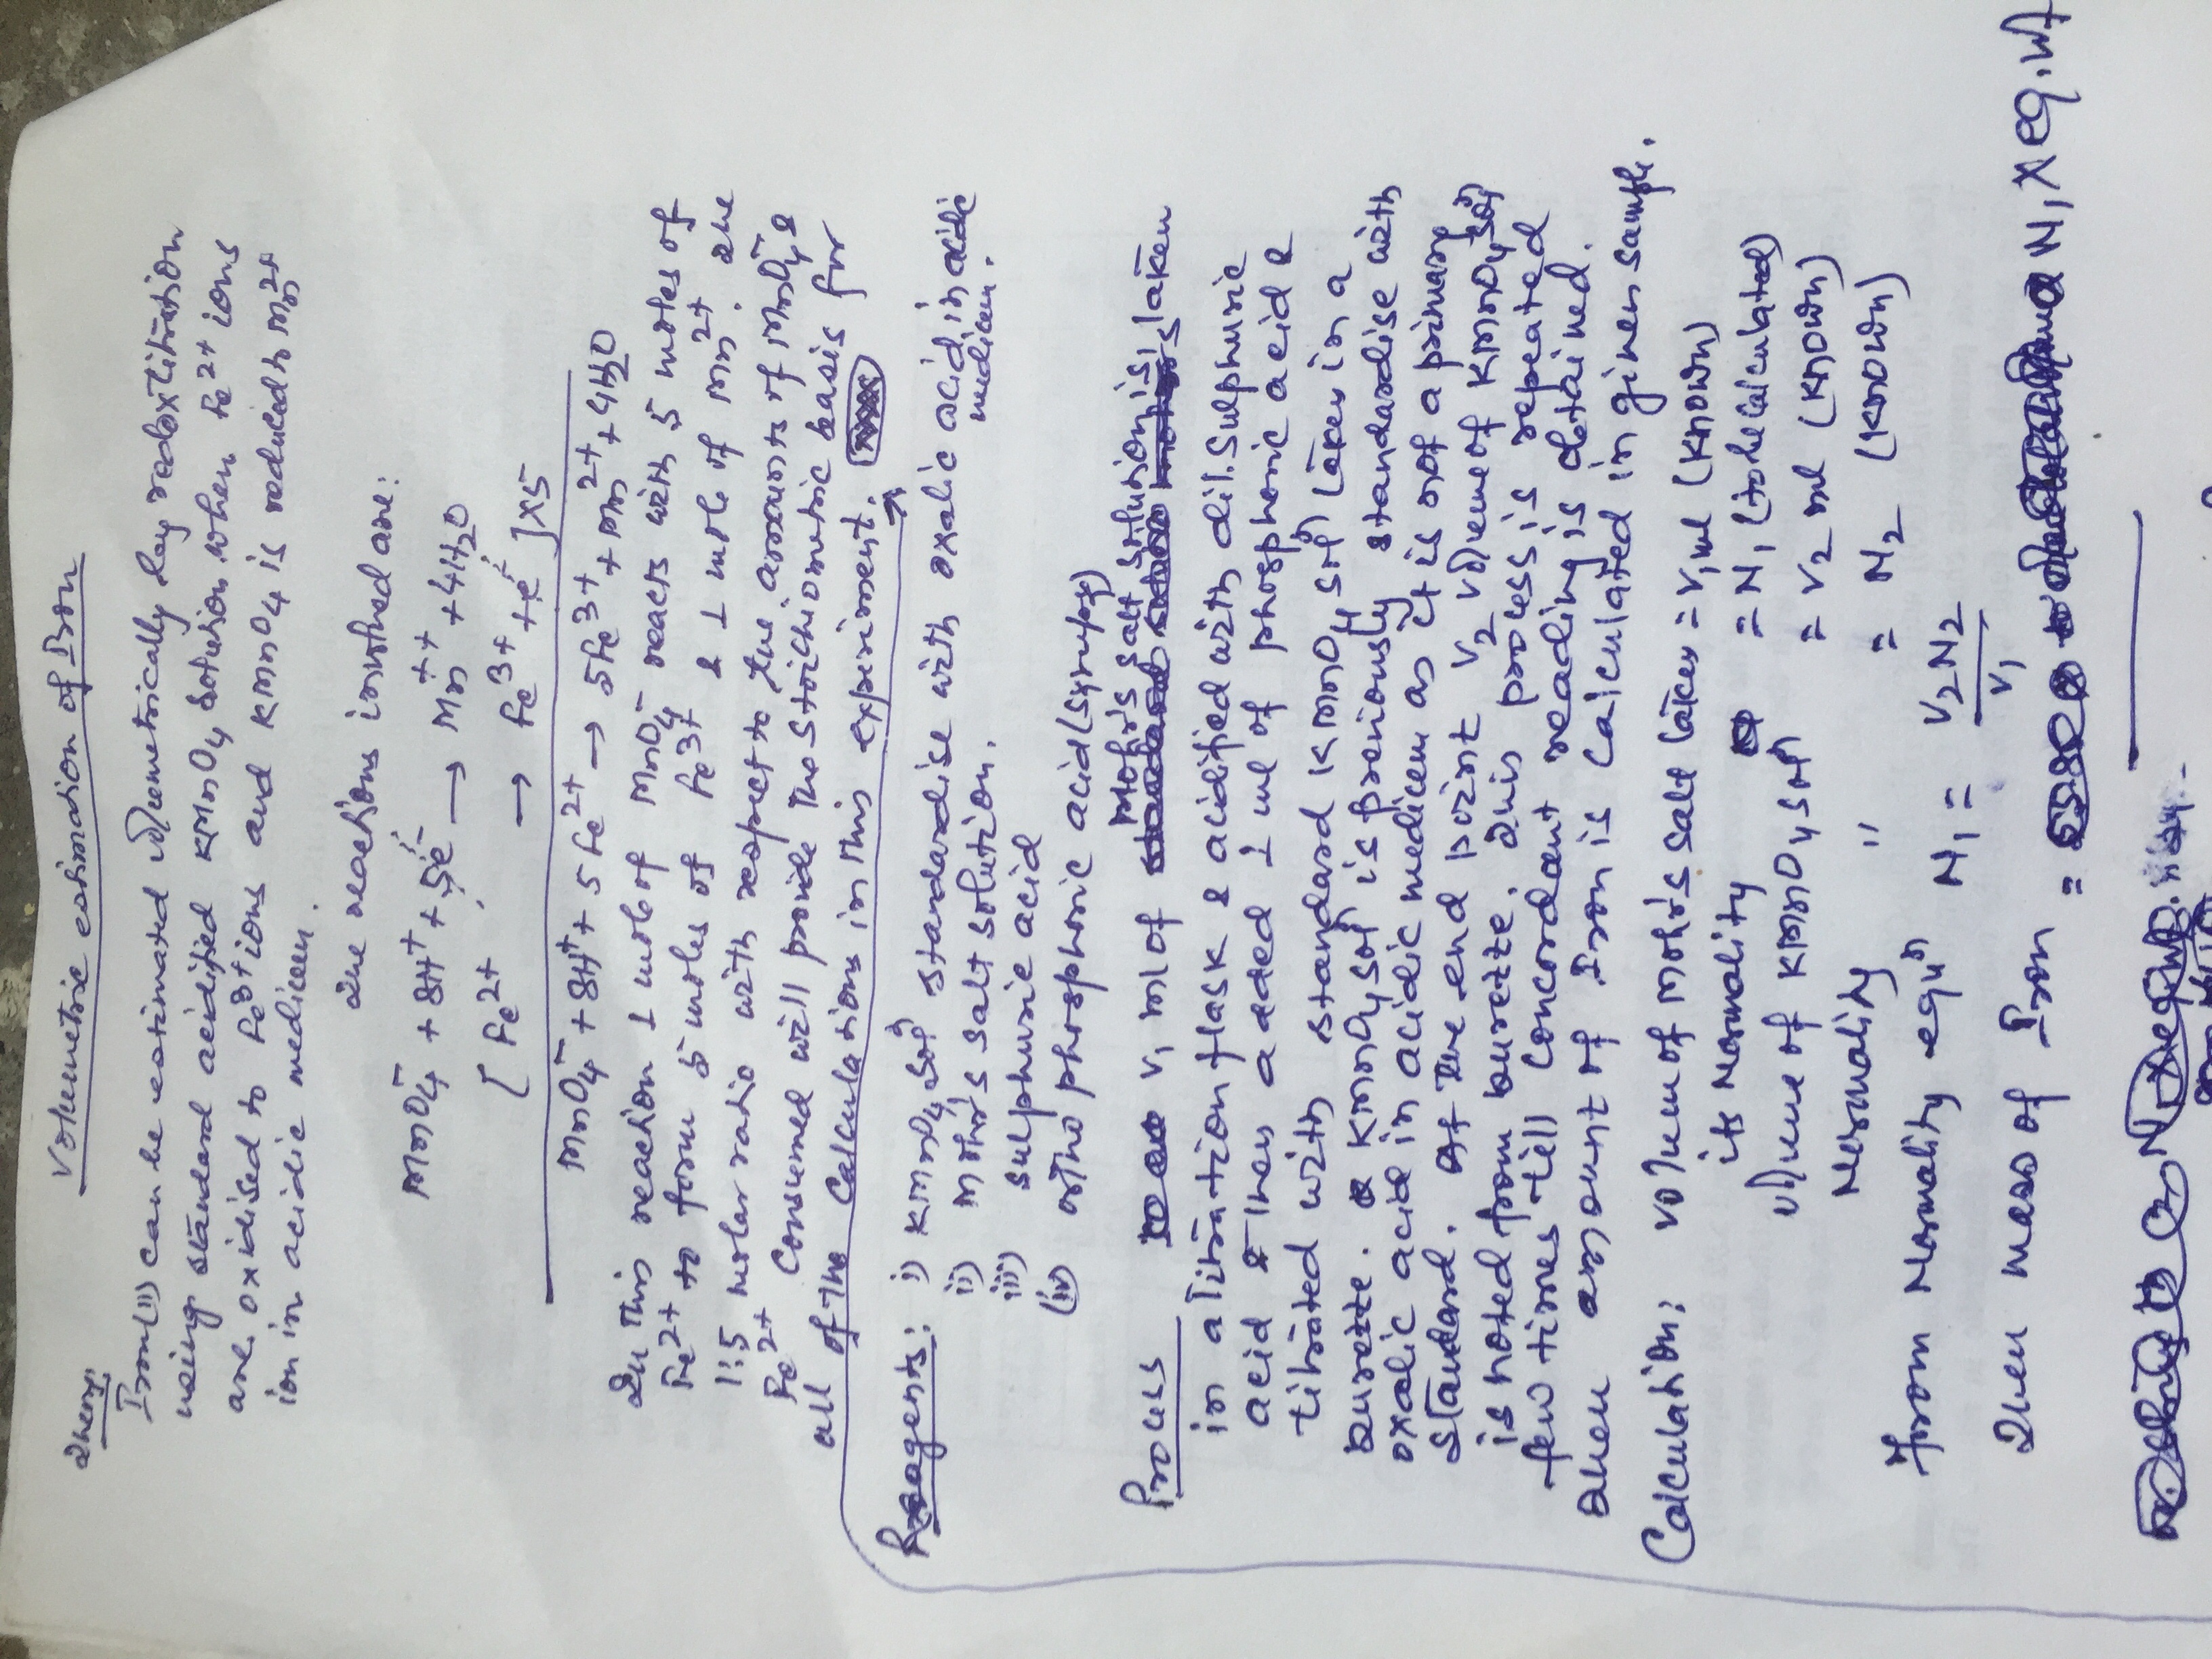 Volumetric estimation of Iron
Theory:
Iron(II) can be estimated volumetrically by redox titration
using standard acidified KMnO4 solution when Fe2+ ions
are oxidised to Fe3+ ions and KMnO4 is reduced to Mn2+
ion in acidic medium.
The reactions involved are:
MnO4- + 8H+ + 5e- → Mn++ + 4H2O
[ Fe2+ → Fe3+ + e- ] x5
MnO4- + 8H+ + 5Fe2+ → 5Fe3+ + Mn2+ + 4H2O
In this reaction 1 mole of MnO4- reacts with 5 moles of
Fe2+ to form 5 moles of Fe3+ & 1 mole of Mn2+. The
1:5 molar ratio with respect to the amounts of MnO4- &
Fe2+ consumed will provide the stoichiometric basis for
all of the calculations in this experiment.
Reagents: i) KMnO4 soln standardise with oxalic acid in acidic medium.
ii) Mohr's salt solution.
iii) sulphuric acid
(iv) ortho phosphoric acid (syrupy)
Process V1 ml of Mohr's salt solution is taken
in a titration flask & acidified with dil. sulphuric
acid & then added 1 ml of phosphoric acid &
titrated with standard KMnO4 soln taken in a
burette. KMnO4 soln is previously standardise with
oxalic acid in acidic medium as it is not a primary
standard. At the end point V2 volume of KMnO4 soln
is noted from burette. This process is repeated
few times till concordant reading is obtained.
Then amount of Iron is calculated in given sample.
Calculation: volume of Mohr's salt taken = V1 ml (known)
its Normality = N1 (to be calculated)
volume of KMnO4 soln = V2 ml (known)
Normality " = N2 (known)
From Normality eqn N1 = V2N2/V1
Then mass of Iron = N1 x eq. wt